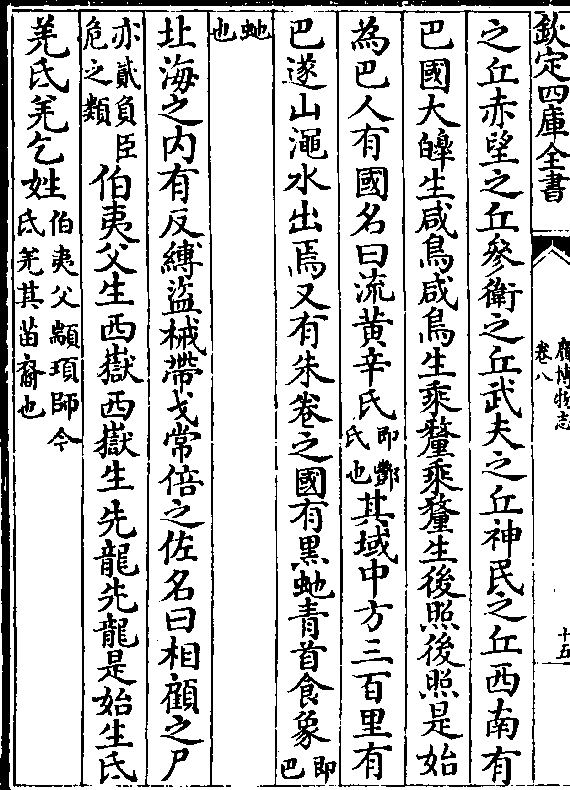 欽定四庫全書
廣博物志
卷八
十五
之丘赤望之丘參衛之丘武夫之丘神民之丘西南有
巴國大皥生咸鳥咸鳥生乘釐乘釐生後照後照是始
為巴人有國名曰流黄辛氏即酆氏也其域中方三百里有
巴遂山澠水出焉又有朱卷之國有黒虵青首食象即巴
虵也
北海之内有反縛盜械帶戈常倍之佐名曰相顧之尸
亦貳負臣危之類伯夷父生西嶽西嶽生先龍先龍是始生氐
羌氐羌乞姓伯夷父顓頊師今氐羌其苗裔也